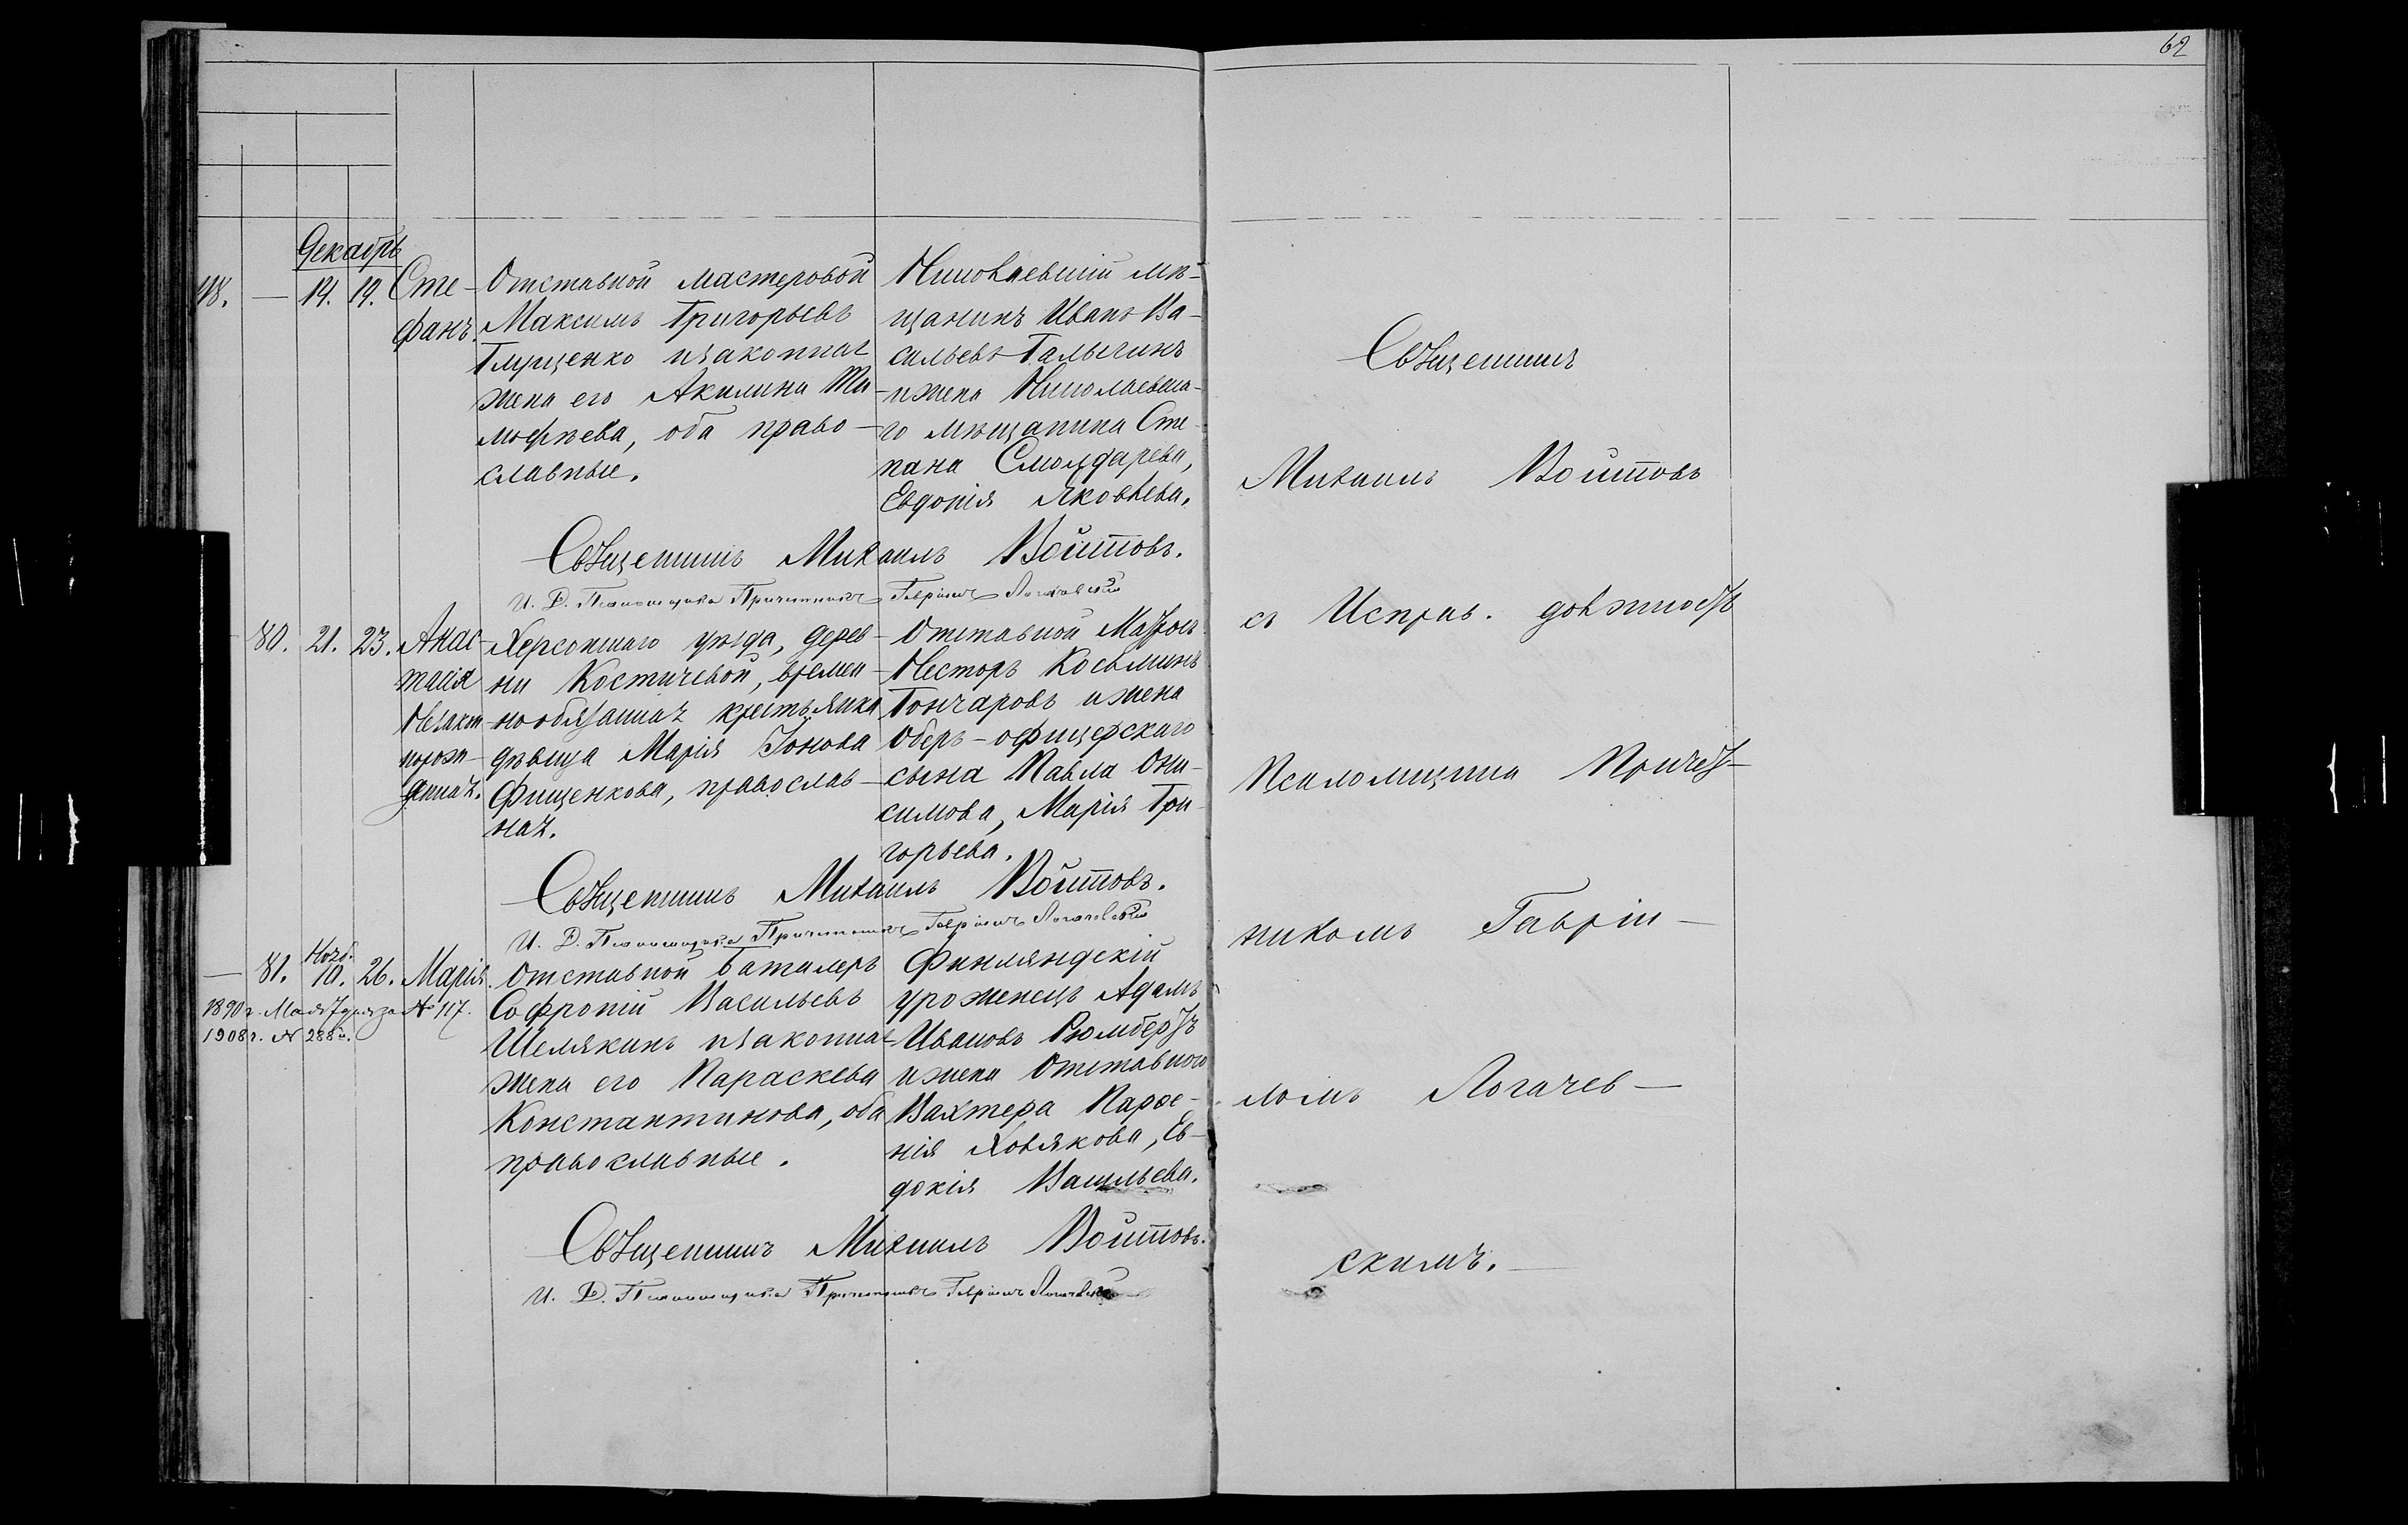 62
Декабрь
98. — 14. 19. Сте-
фанъ.
Отставной мастеровой
Максимъ Григорьевъ
Глущенко и законная
жена его Акилина Ти-
мофѣева, оба право-
славные.
Николаевскій мѣ-
щанинъ Иванъ Ва-
сильевъ Галыгинъ
и жена Николаевска-
го мѣщанина Сте-
пана Слюздарева,
Евдокія Яковлева.
Священникъ Михаилъ Войтовъ.
И. Д. Псаломщика Причетникъ Гавріилъ Логачевскій
— 80. 21. 23. Анас-
тасія
Незакон-
норож-
денная.
Херсонскаго уѣзда, дерев-
ни Костычевой, времен-
нообязанная крестьянка
дѣвица Марія Іонова
Фищенкова, православ-
ная.
Отставной Матросъ
Несторъ Косьминъ
Гончаровъ и жена
Оберъ-офицерскаго
сына Павла Они-
симова, Марія Гри-
горьева.
Священникъ Михаилъ Войтовъ.
И. Д. Псаломщика Причетникъ Гавріилъ Логачевскій
Нояб.
— 81. 10. 26. Марія.
1890 г. Мая 7 дня за № 117.
1908 г. № 288
Отставной баталеръ
Софроній Васильевъ
Шелякинъ и законная
жена его Параскева
Константинова, оба
православные.
Финляндскій
уроженецъ Адамъ
Ивановъ Рюмбергъ
и жена Отставного
Вахтера Парфе-
нія Ховлякова, Ев-
докія Васильева.
Священникъ Михаилъ Войтовъ.
И. Д. Псаломщика Причетникъ Гавріилъ Логачевскій
Священникъ
Михаилъ Войтовъ
съ Исправ. должность
Псаломщика Причет-
никомъ Гавріи-
ломъ Логачев-
скимъ.